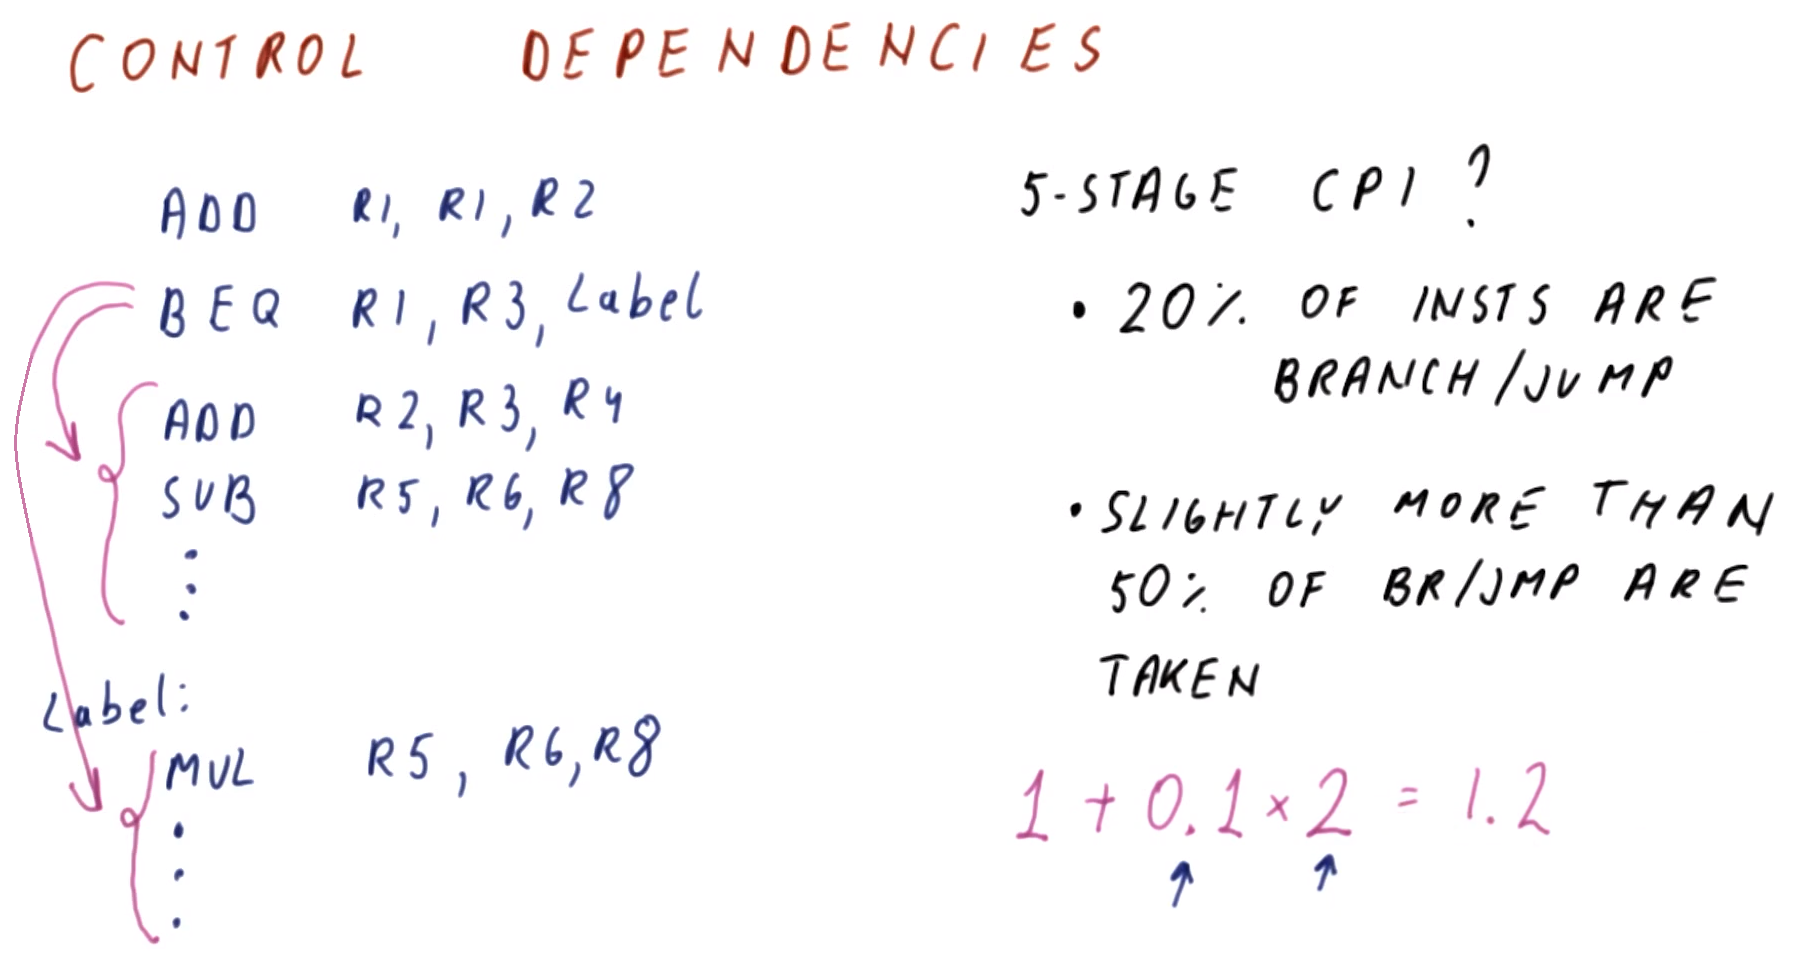 CONTROL DEPENDENCIES
ADD R1, R1, R2
BEQ R1, R3, Label
ADD R2, R3, R4
SUB R5, R6, R8
Label:
MUL R5, R6, R8
5-STAGE CPI ?
• 20% OF INSTS ARE
BRANCH/JUMP
• SLIGHTLY MORE THAN
50% OF BR/JMP ARE
TAKEN
1 + 0.1 × 2 = 1.2